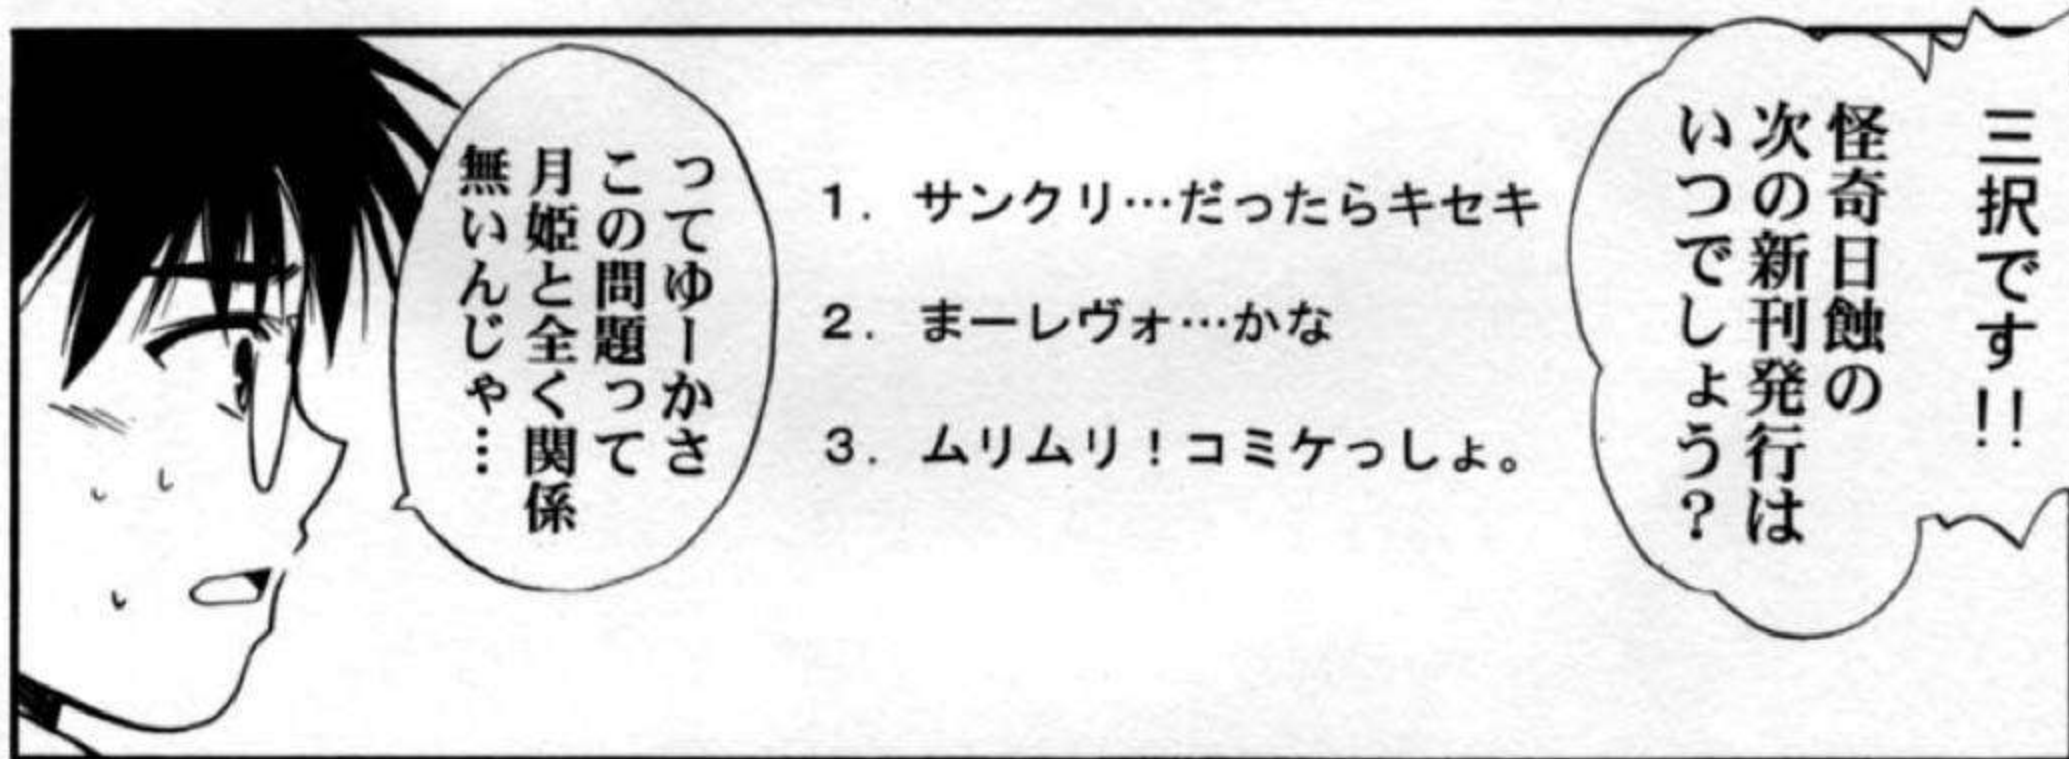 三択です!!
怪奇日蝕の
次の新刊発行は
いつでしょう?
1. サンクリ…だったらキセキ
2. まーレヴォ…かな
3. ムリムリ!コミケっしょ。
ってゆーかさ
この問題って
月姫と全く関係
無いんじゃ…